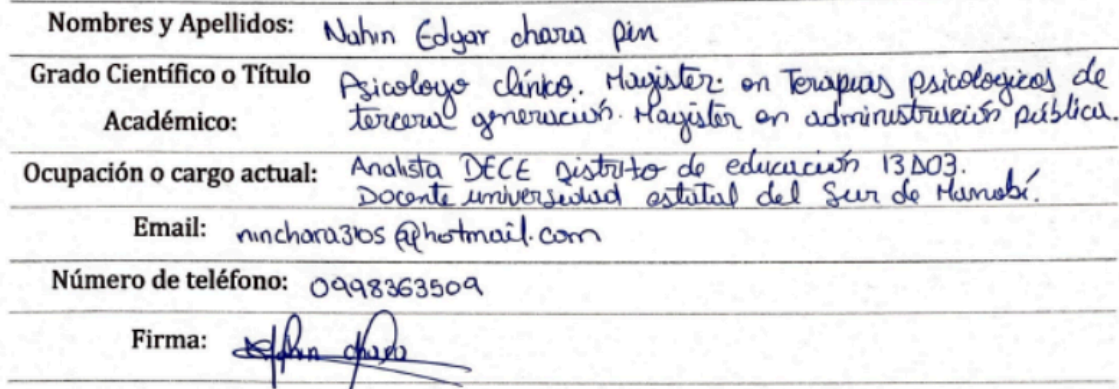 Nombres y Apellidos: Nahin Edgar chara pin
Grado Científico o Título Académico: Psicologo clínico. Magister en Terapias psicologicas de
tercera generación. Magister en administración pública.
Ocupación o cargo actual: Analista DECE Distrito de educación 13D03.
Docente universidad estatal del Sur de Manabí.
Email: @hotmail.com
Número de teléfono: 0998363509
Firma: